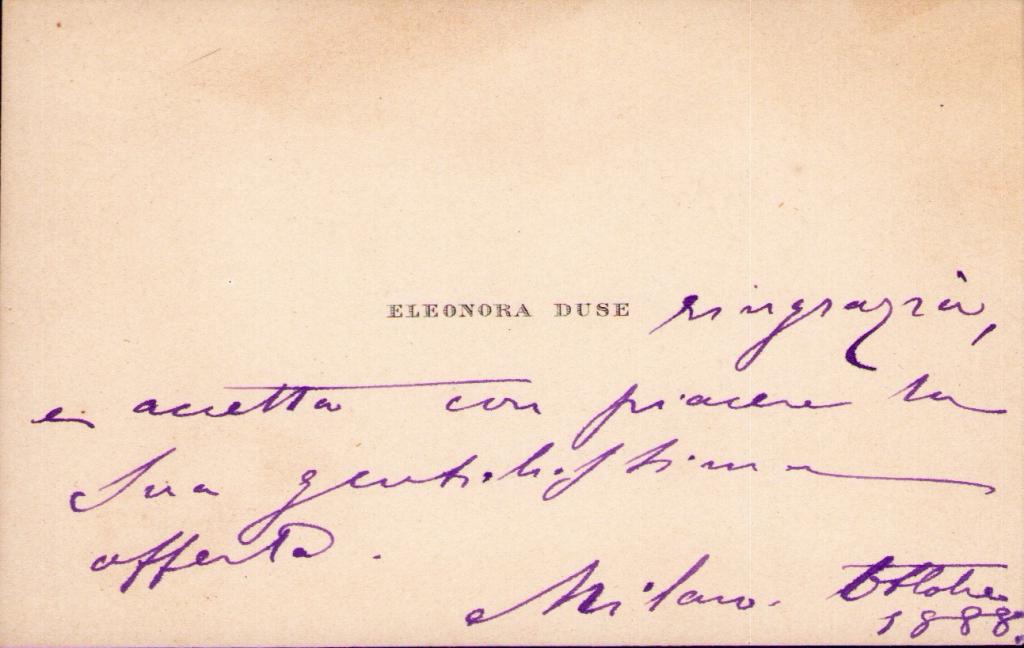 ELEONORA DUSE ringrazia,
e accetta con piacere la
Sua gentilissima
offerta.
Milano. Ottobre
1888.